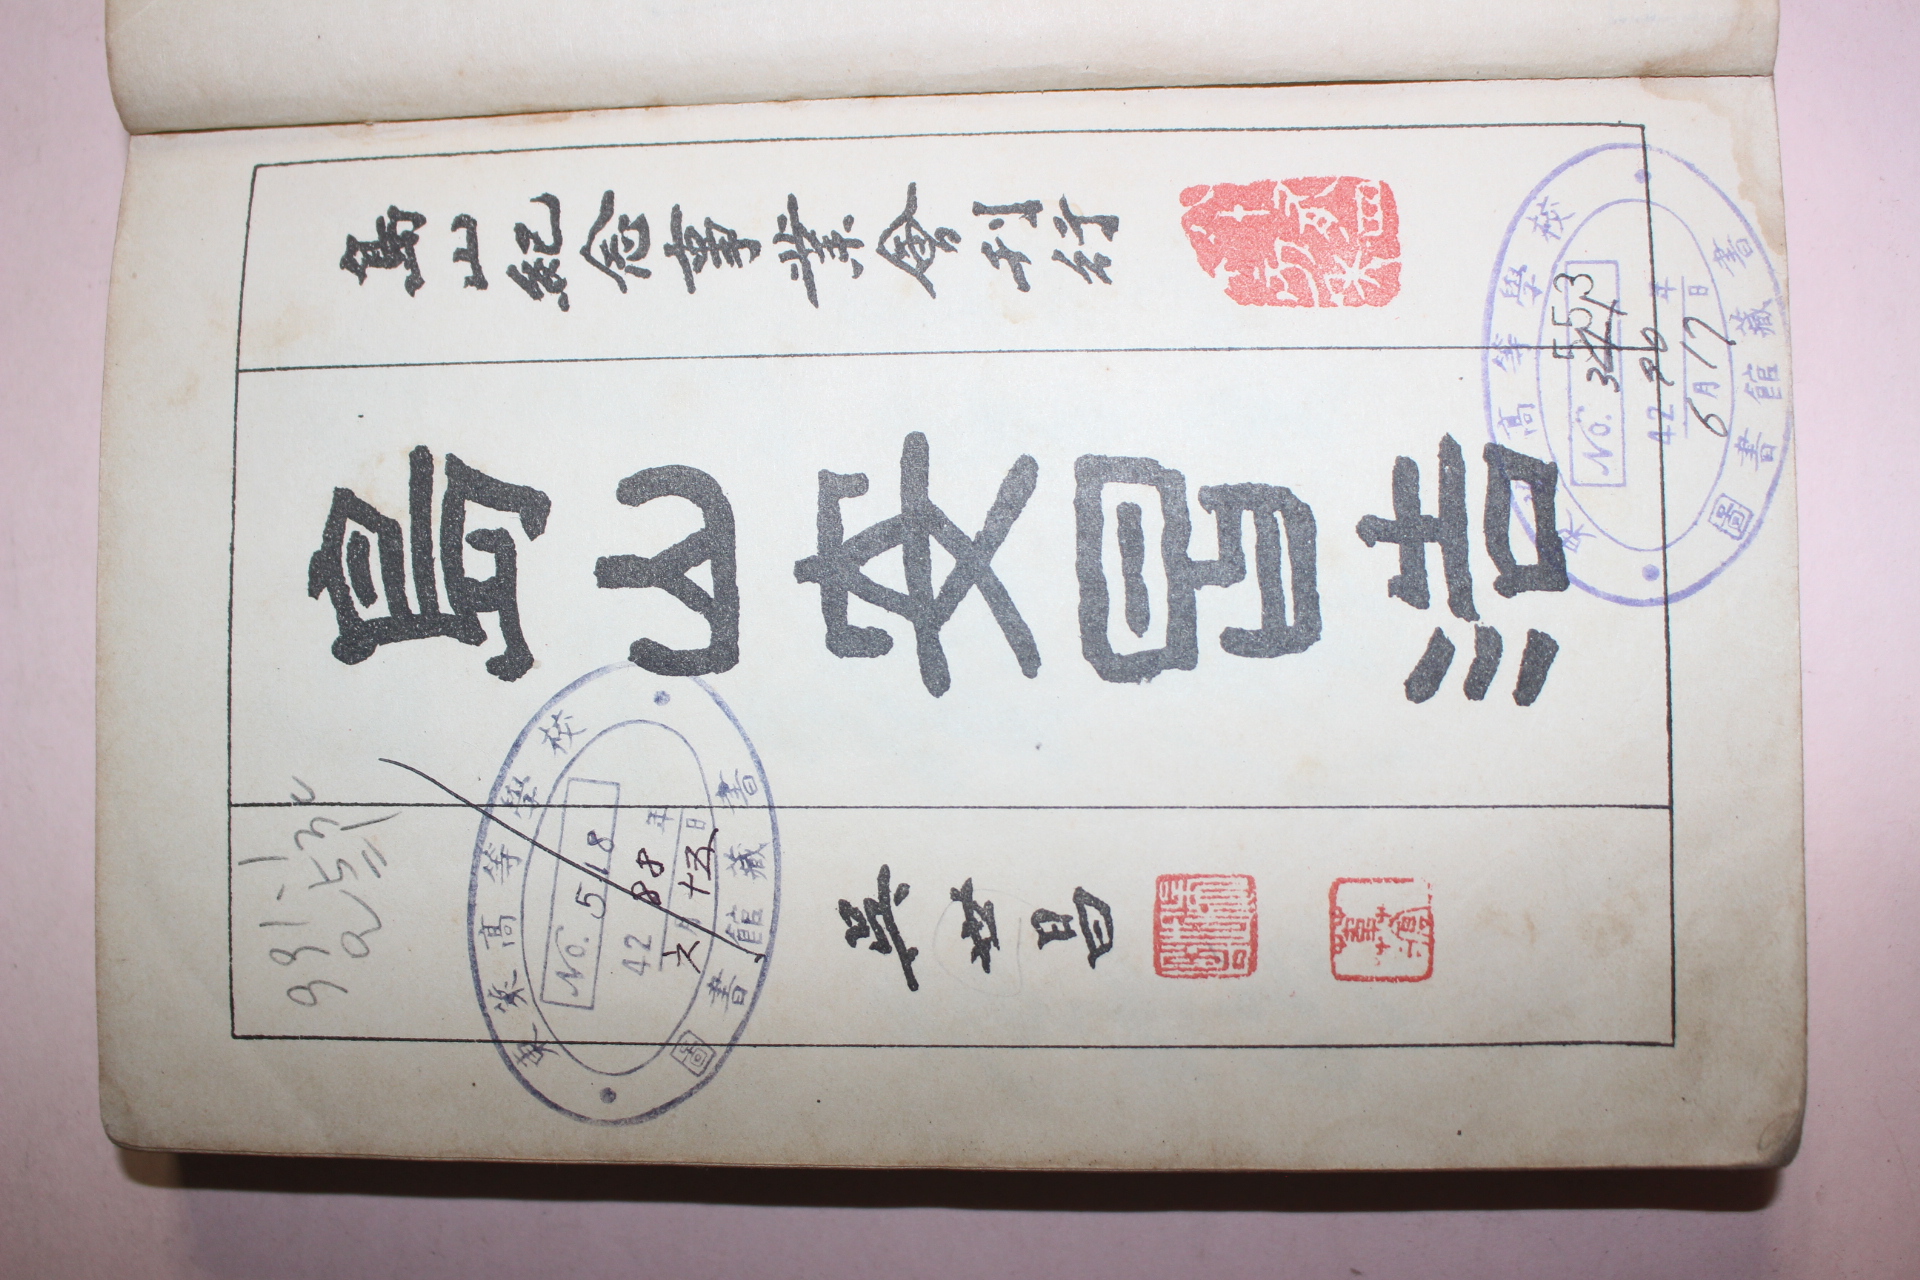 島山紀念事業會刊行
島山安昌浩
吳世昌
東萊高等學校
No. 553
4290年
6月17日
圖書館藏書
東萊高等學校
No. 518
4288年
六月十五日
圖書館藏書